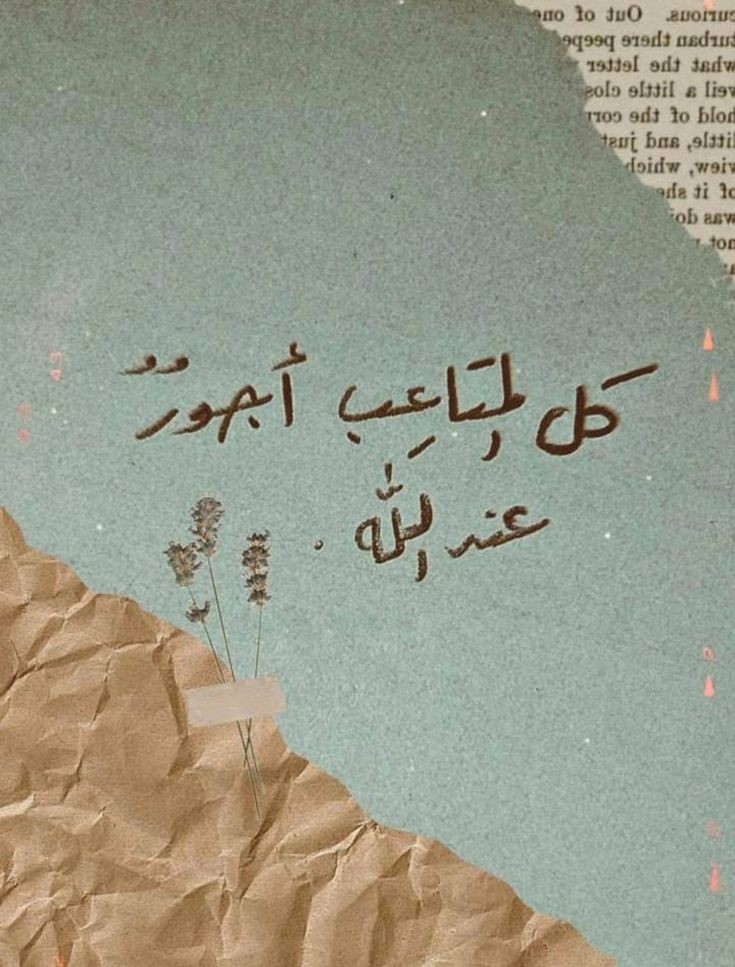 curious. Out of one
turban there peeped
what the letter
veil a little
hold of the
little, and just
view, which
of it
was
not
كل المتَاعِب أجورٌ
عند اللّٰه .